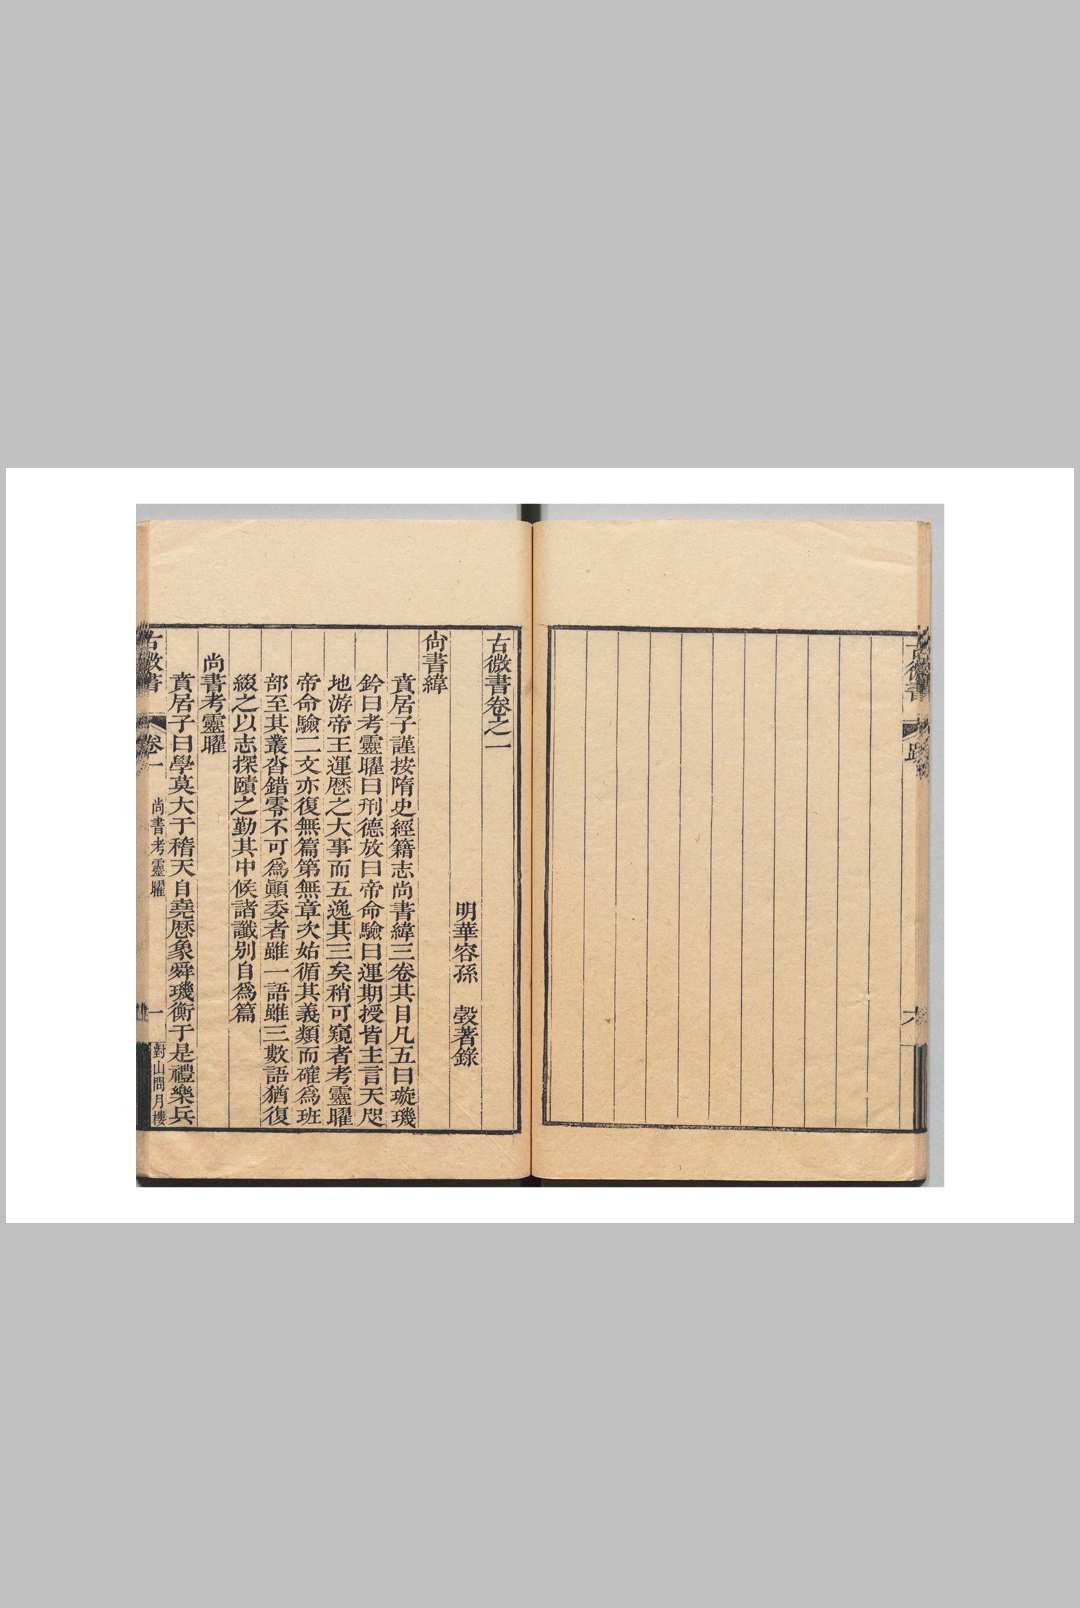 古微書
跋
六
古微書卷之一
明華容孫 瑴著錄
尚書緯
賁居子謹按隋史經籍志尚書緯三卷其目凡五曰璇璣
鈐曰考靈曜曰刑德放曰帝命驗曰運期授皆主言天咫
地游帝王運厯之大事而五逸其三矣稍可窺者考靈曜
帝命驗二文亦復無篇第無章次姑循其義類而確爲班
部至其叢沓錯零不可爲顚委者雖一語雖三數語猶復
綴之以志探賾之勤其中候諸讖别自爲篇
尚書考靈曜
賁居子曰學莫大于稽天自堯厯象舜璣衡于是禮樂兵
古微書
卷一
尚書考靈曜
一
對山問月樓